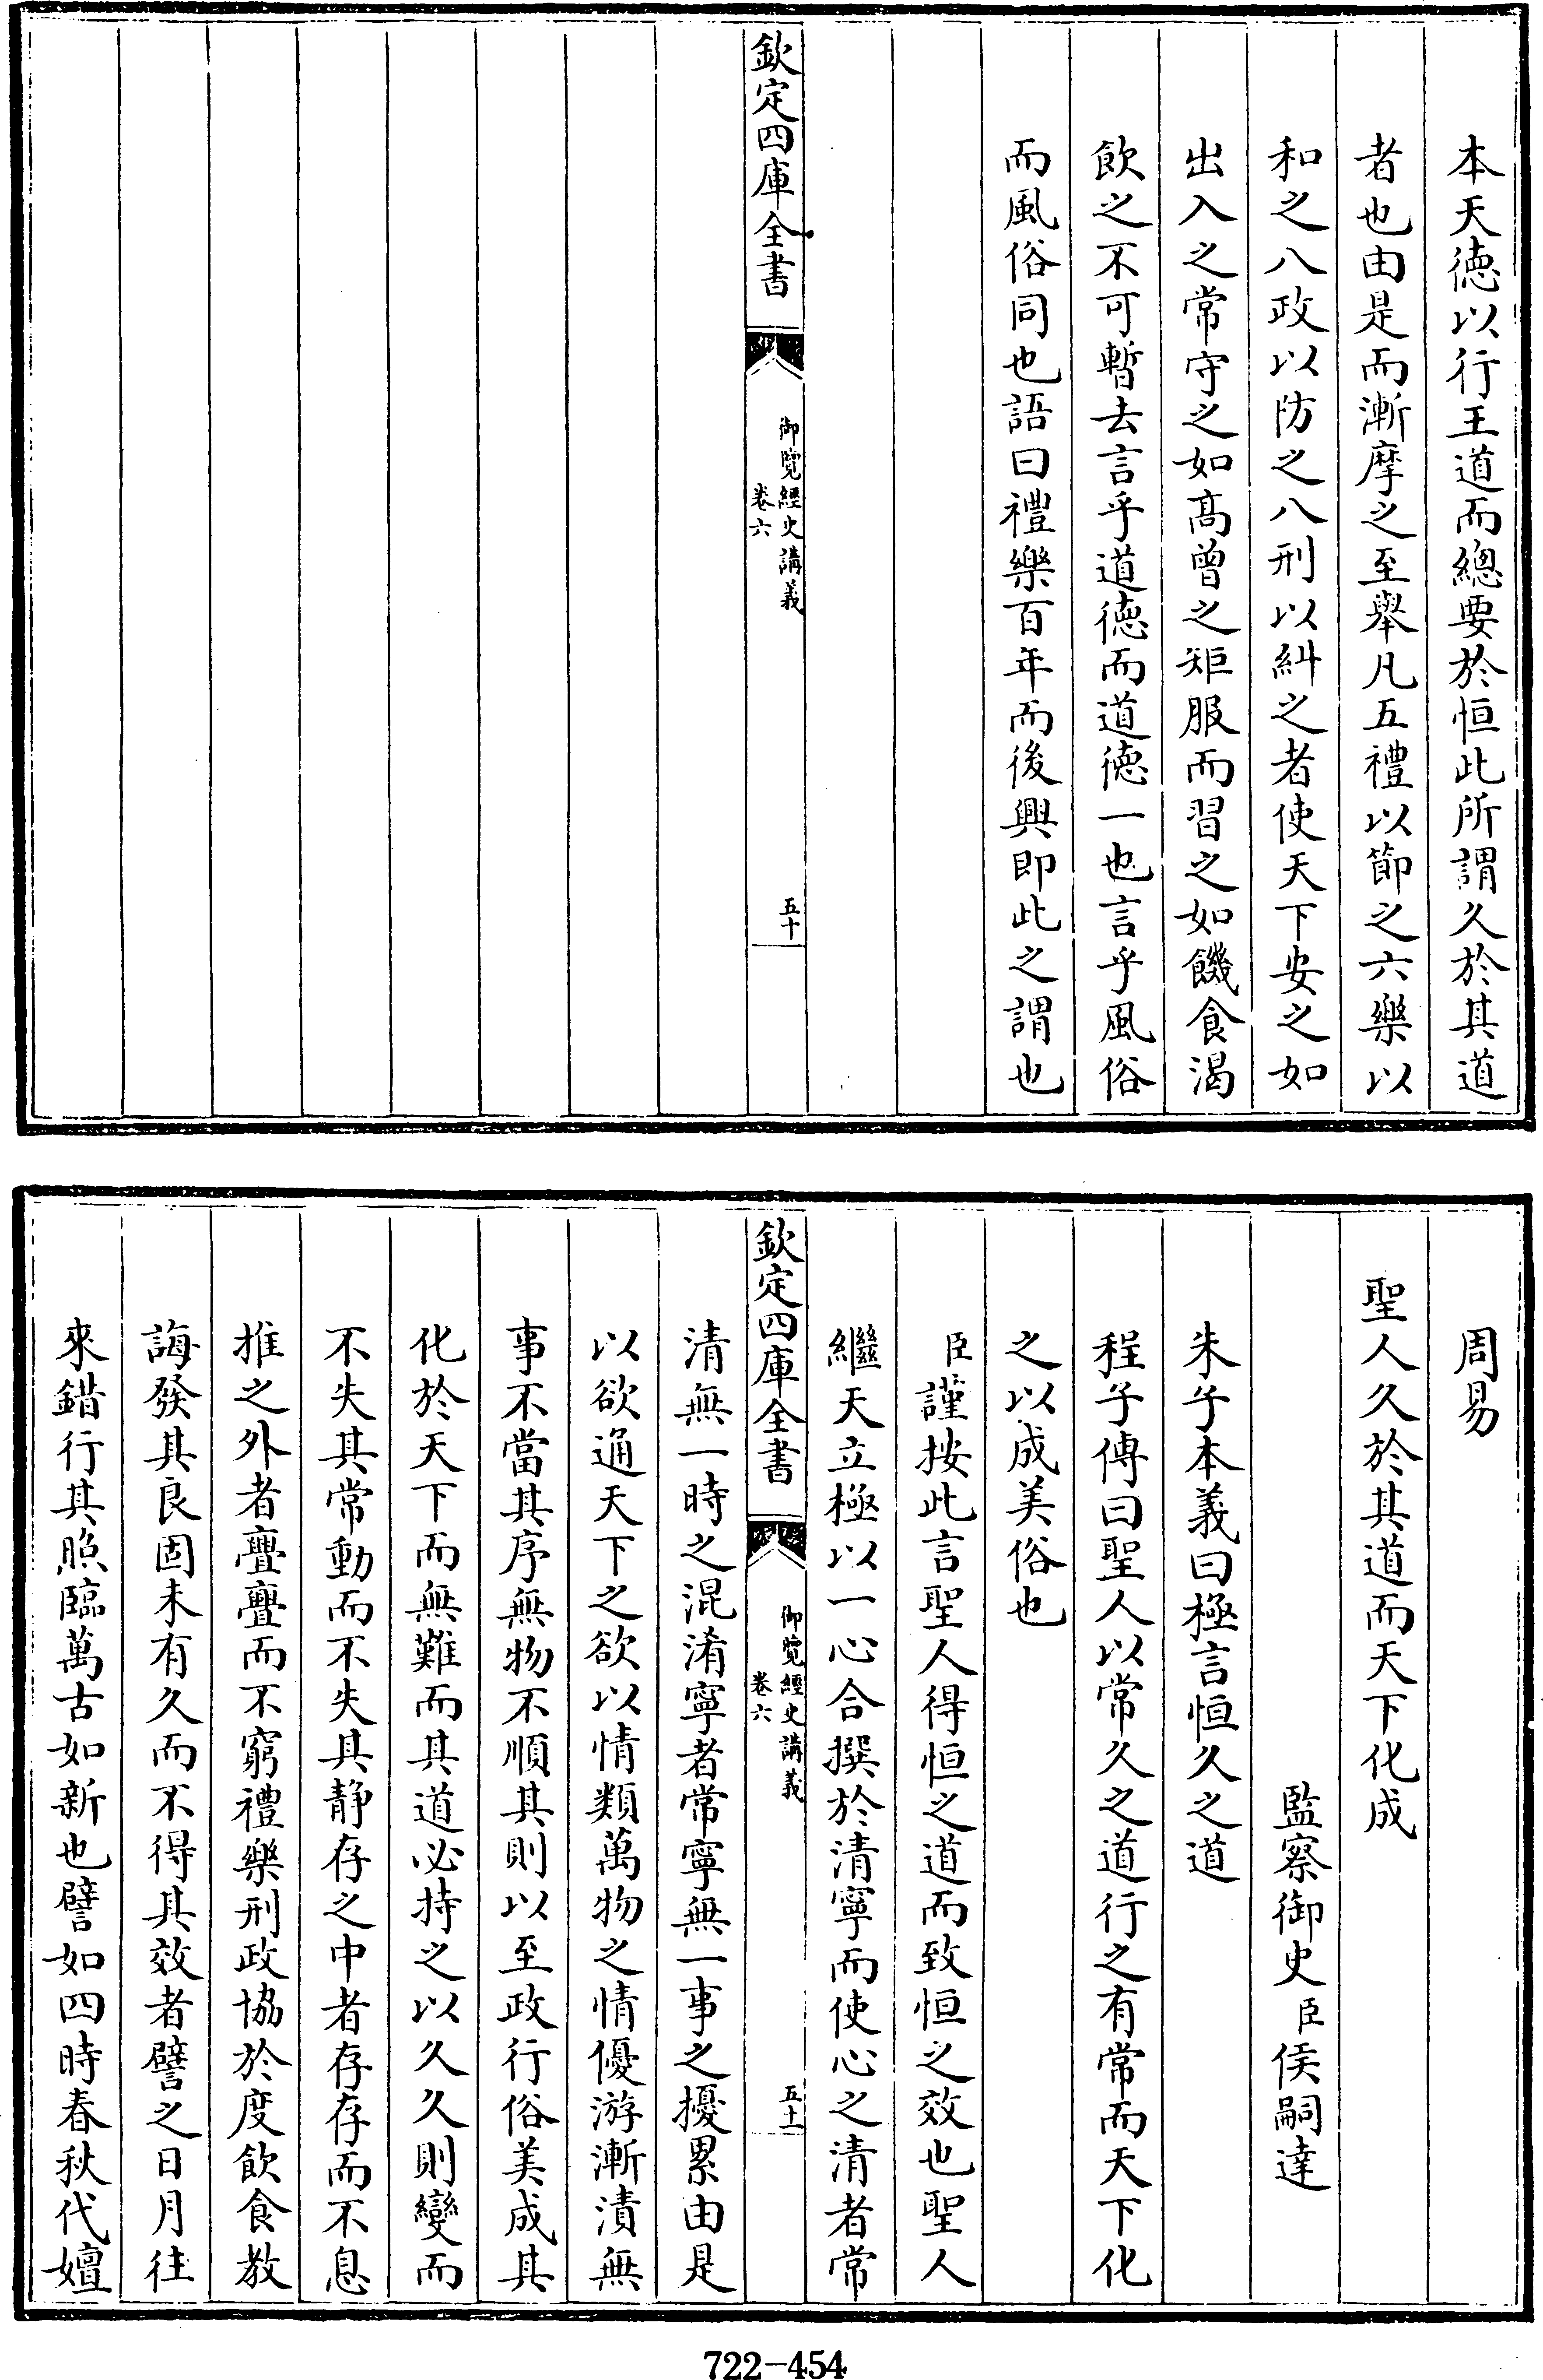 本天徳以行王道而總要於恒此所謂久於其道
者也由是而漸摩之至舉凡五禮以節之六樂以
和之八政以防之八刑以糾之者使天下安之如
出入之常守之如髙曾之矩服而習之如饑食渴
飲之不可暫去言乎道徳而道徳一也言乎風俗
而風俗同也語曰禮樂百年而後興即此之謂也
欽定四庫全書
御覽經史講義
卷六
五十
周易
聖人久於其道而天下化成
監察御史臣侯嗣達
朱子本義曰極言恒久之道
程子傳曰聖人以常久之道行之有常而天下化
之以成美俗也
臣謹按此言聖人得恒之道而致恒之效也聖人
繼天立極以一心合撰於清寧而使心之清者常
欽定四庫全書
御覽經史講義
卷六
五十一
清無一時之混淆寧者常寧無一事之擾累由是
以欲通天下之欲以情類萬物之情優游漸漬無
事不當其序無物不順其則以至政行俗美成其
化於天下而無難而其道必持之以久久則變而
不失其常動而不失其静存之中者存存而不息
推之外者亹亹而不窮禮樂刑政協於度飲食教
誨發其良固未有久而不得其效者譬之日月往
來錯行其照臨萬古如新也譬如四時春秋代嬗
722-454